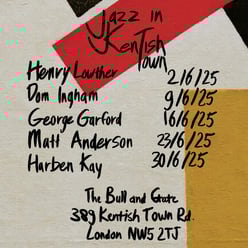 Jazz in
Kentish
Town
Henry Lowther 2/6/25
Dom Ingham 9/6/25
George Garford 16/6/25
Matt Anderson 23/6/25
Harben Kay 30/6/25
The Bull and Gate
389 Kentish Town Rd.
London NW5 2TJ